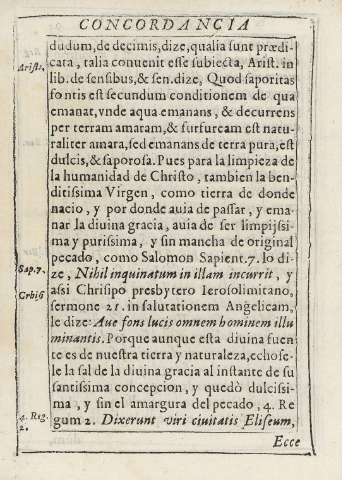 CONCORDANCIA
dudum, de decimis, dize, qualia sunt prædi-
Aristo.
cata, talia conuenit esse subiecta, Arist. in
lib. de sensibus, & sen. dize, Quod saporitas
fontis est secundum conditionem de qua
emanat, vnde aqua emanans, & decurrens
per terram amaram, & surfuream est natu-
raliter amara, sed emanans de terra pura, est
dulcis, & saporosa. Pues para la limpieza de
la humanidad de Christo, tambien la ben-
ditissima Virgen, como tierra de donde
nacio, y por donde auia de passar, y ema-
nar la diuina gracia, auia de ser limpijssi-
ma y purissima, y sin mancha de original
pecado, como Salomon Sapient. 7. lo di-
Sap. 7.
ze, Nihil inquinatum in illam incurrit, y
assi Chrisipo presbytero Ierosolimitano,
sermone 21. in salutationem Angelicam,
le dize: Aue fons lucis omnem hominem illu
minantis. Porque aunque esta diuina fuen
te es de nuestra tierra y naturaleza, echose-
le la sal de la diuina gracia al instante de su
santissima concepcion, y quedò dulcissi-
ma, y sin el amargura del pecado, 4. Re
4. Reg.
2.
gum 2. Dixerunt viri ciuitatis Eliseum,
Ecce